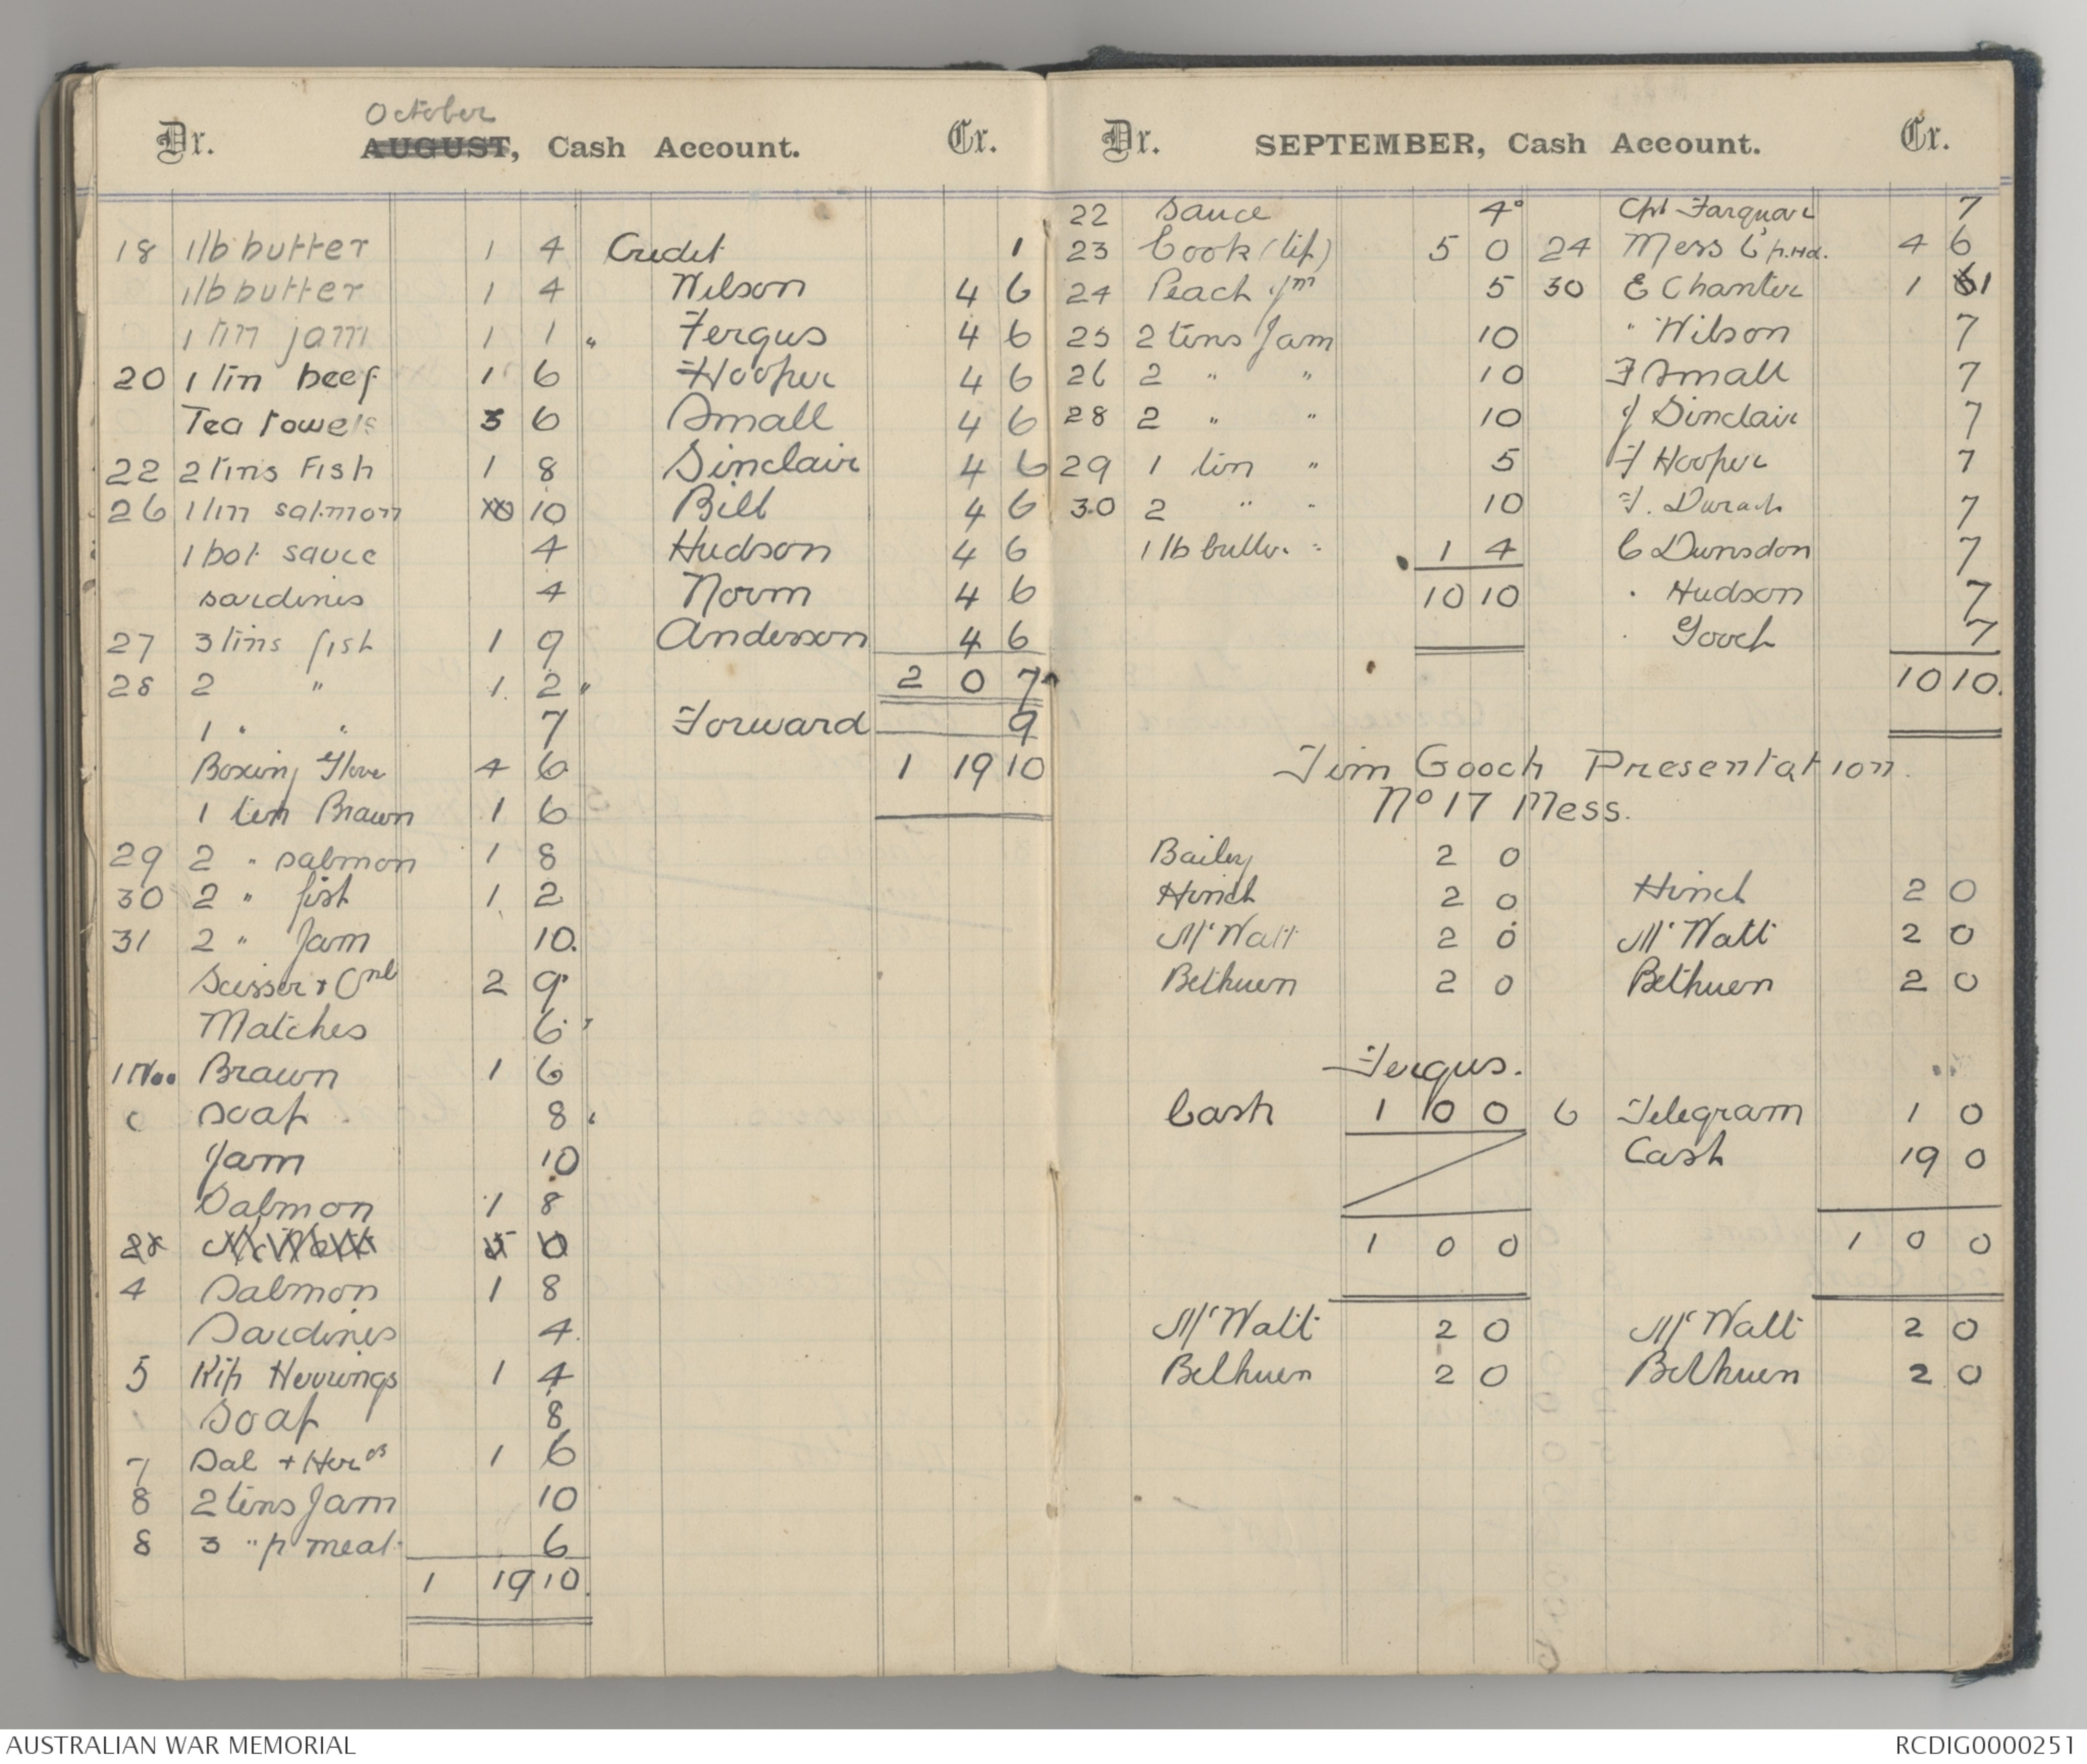 October
Dr. AUGUST, Cash Account. Cr.
18 1lb butter 1 4 Credit 1
1lb butter 1 4 Wilson 4 6
1 tin jam 1 1 " Fergus 4 6
20 1 tin beef 1 6 Hooper 4 6
Tea towels 3 6 Small 4 6
22 2 tins Fish 1 8 Sinclair 4 6
26 1 tin salmon 10 Bill 4 6
1 bot sauce 4 Hudson 4 6
sardines 4 Norm 4 6
27 3 tins fish 1 9 Anderson 4 6
28 2 " 1. 2 " 2 0 7
1 " " 7 Forward 9
Boxing Glove 4 6 1 19 10
1 tin Brawn 1 6
29 2 " salmon 1 8
30 2 " fish 1 2
31 2 " Jam 10.
Scissor & Onl 2 9
Matches 6
1 Nov Brawn 1 6
soap 8
Jam 10
Salmon 1 8
5 0
4 Salmon 1 8
Sardines 4
5 Kip Herrings 1 4
soap 8
7 Sal + Her 1 6
8 2 tins Jam 10
8 3 " p meat 6
1 19 10.
Dr. SEPTEMBER, Cash Account. Cr.
22 sauce 4 Cpl Farquar 7
23 Cook (tip) 5 0 24 Mess 6 p.Hd. 4 6
24 Peach Jm 5 30 E Chanter 1 1
25 2 tins Jam 10 " Wilson 7
26 2 " " 10 F Small 7
28 2 " " 10 J Sinclair 7
29 1 tin " 5 F Hooper 7
30 2 " " 10 F. Durach 7
1 lb butter 1 4 C Dunsdon 7
10 10 " Hudson 7
" Gooch 7
10 10.
Jim Gooch Presentation.
No 17 Mess.
Bailey 2 0
Hinch 2 0 Hinch 2 0
McWatt 2 0 McWatt 2 0
Bethuen 2 0 Bethuen 2 0
Fergus.
Cash 1 0 0 6 Telegram 1 0
Cash 19 0
1 0 0 1 0 0
McWatt 2 0 McWatt 2 0
Bethuen 2 0 Bethuen 2 0
AUSTRALIAN WAR MEMORIAL RCDIG0000251